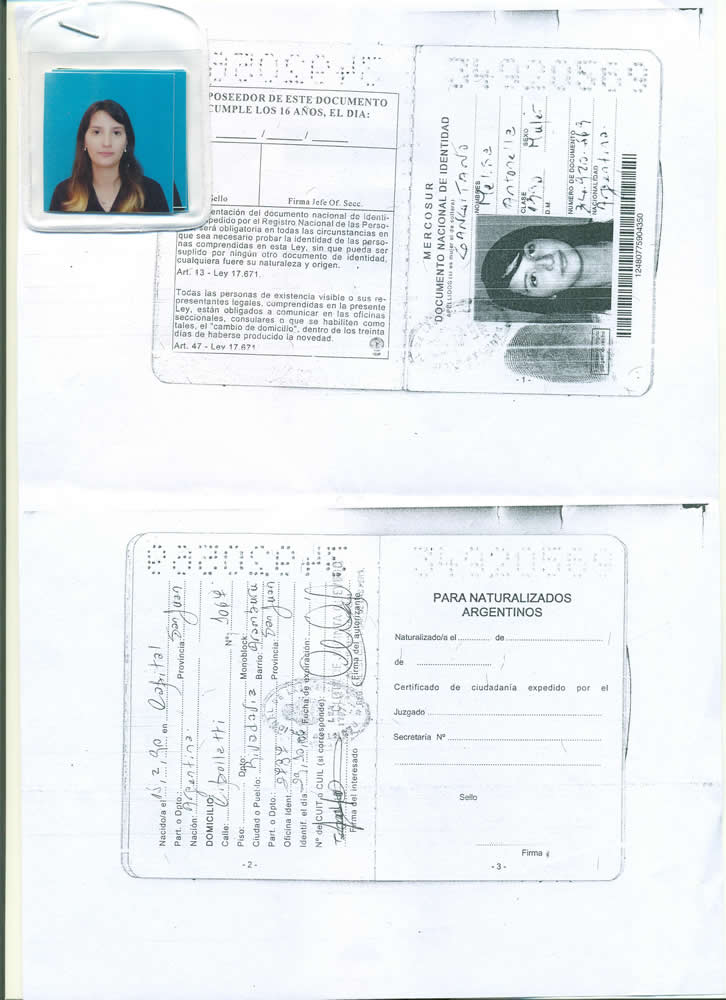 POSEEDOR DE ESTE DOCUMENTO
CUMPLE LOS 16 AÑOS, EL DIA:
Sello
Firma Jefe Of. Secc.
entación del documento nacional de identi-
pedido por el Registro Nacional de las Perso-
será obligatoria en todas las circunstancias en
que sea necesario probar la identidad de las perso-
nas comprendidas en esta Ley, sin que pueda ser
suplido por ningún otro documento de identidad,
cualquiera fuere su naturaleza y origen.
Art. 13 - Ley 17.671.
Todas las personas de existencia visible o sus re-
presentantes legales, comprendidas en la presente
Ley, están obligados a comunicar en las oficinas
seccionales, consulares o que se habiliten como
tales, el "cambio de domicilio", dentro de los treinta
días de haberse producido la novedad.
Art. 47 - Ley 17.671
MERCOSUR
DOCUMENTO NACIONAL DE IDENTIDAD
APELLIDOS (si es mujer el de soltera)
NOMBRES
Melina
Antonella
CLASE
SEXO
1990
D.M.
NUMERO DE DOCUMENTO
34.920.569
NACIONALIDAD
Argentina
12480775904350
- 1 -
Nacido/a el 15.2.90 en Capital
Part. o Dpto.: Provincia: San Juan
Nación: Argentina
DOMICILIO
Calle: Nº: 1067
Piso: Dpto: Monoblock:
Ciudad o Pueblo: Rivadavia Barrio:
Part. o Dpto: Provincia: San Juan
Oficina Ident.
Identif. el día Fecha de expiración:
Nº de CUIT o CUIL (si corresponde):
Firma del interesado
Firma del autorizante
- 2 -
34920569
PARA NATURALIZADOS
ARGENTINOS
Naturalizado/a el de /
de /
Certificado de ciudadanía expedido por el
Juzgado
Secretaría Nº
Sello
Firma
- 3 -